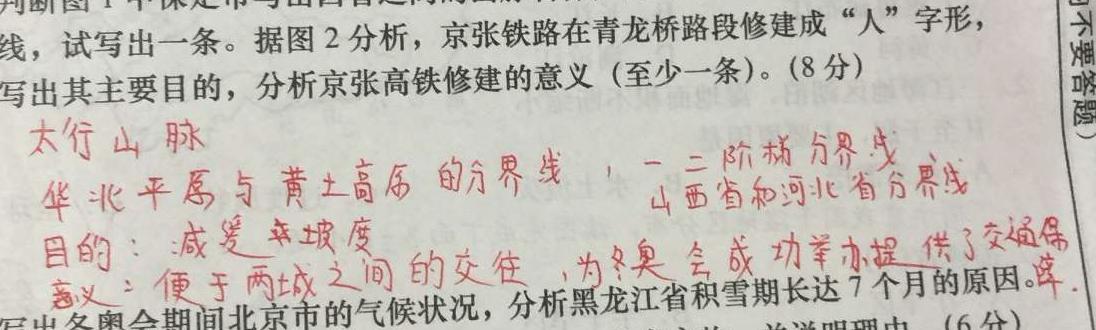 线，试写出一条。据图2分析，京张铁路在青龙桥路段修建成“人”字形，
写出其主要目的，分析京张高铁修建的意义（至少一条）。(8分)
不要答题）
太行山脉
华北平原与黄土高原的分界线，一二阶梯分界线
山西省和河北省分界线
目的：减缓坡度
意义：便于两城之间的交往，为冬奥会成功举办提供了交通保障.
写出冬奥会期间北京市的气候状况，分析黑龙江省积雪期长达7个月的原因。
(6分)